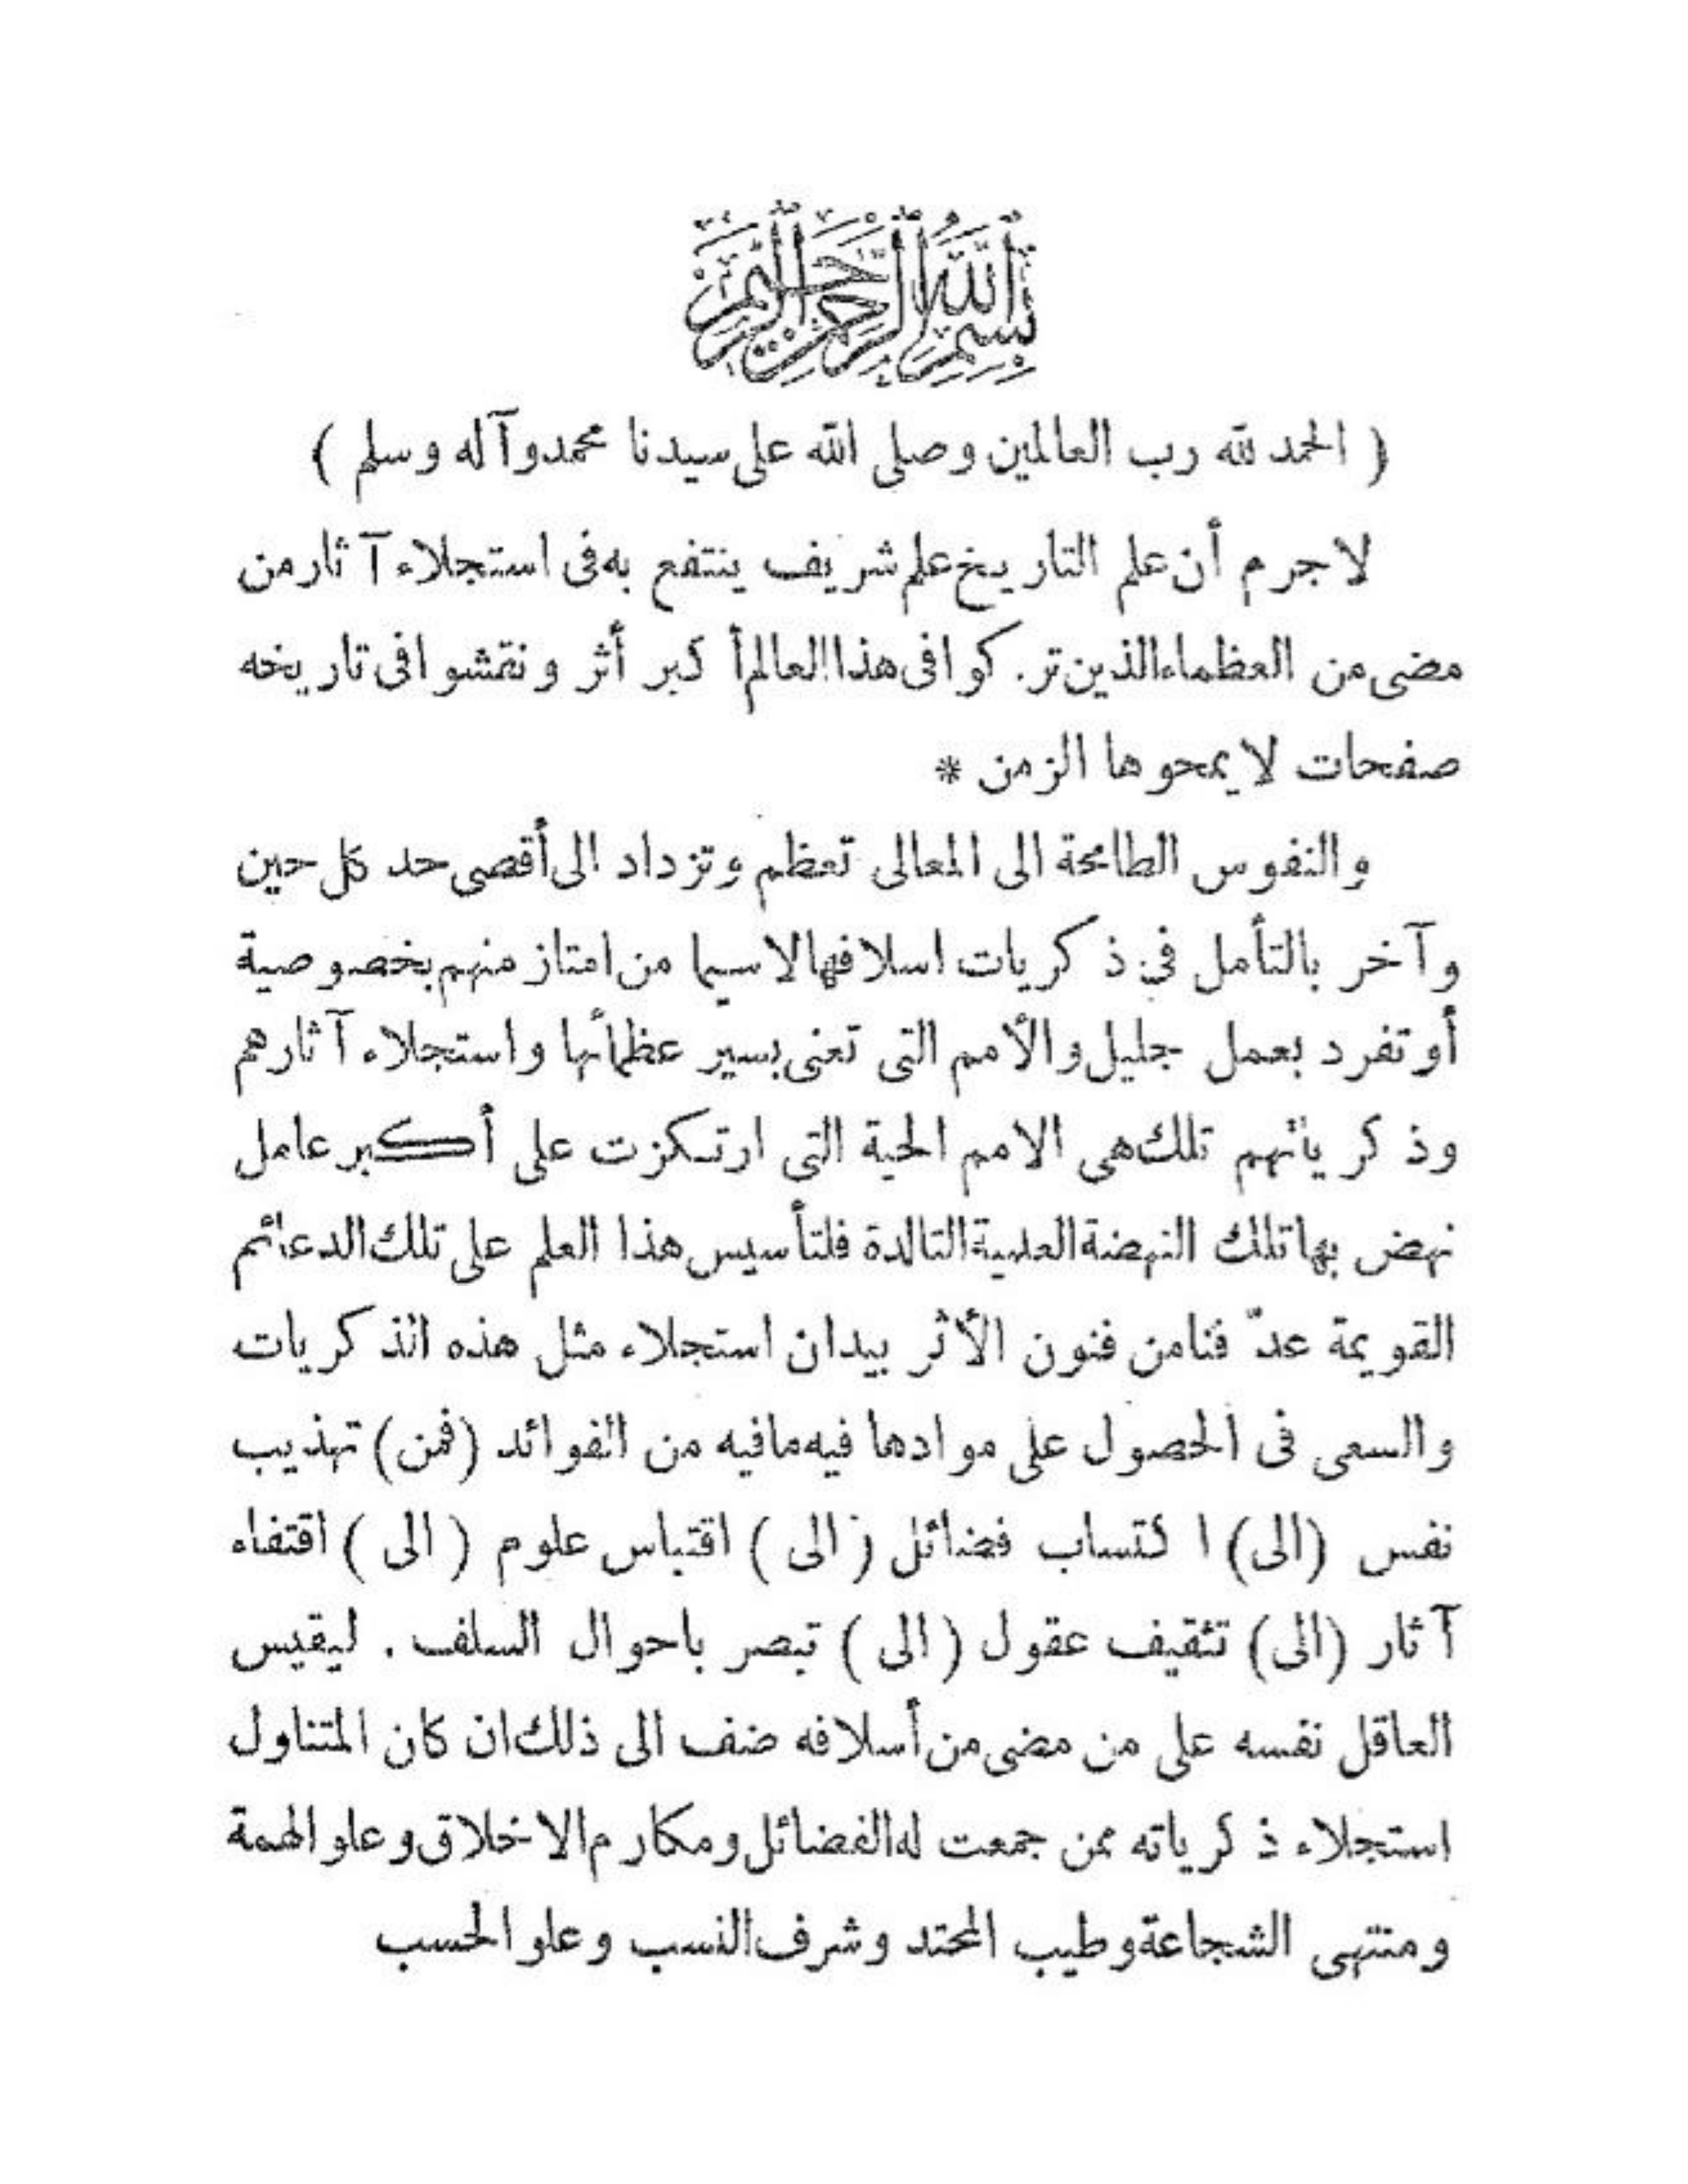 بسم الله الرحمن الرحيم
( الحمد لله رب العالمين وصلى الله على سيدنا محمد وآله وسلم )
لا جرم أن علم التاريخ علم شريف ينتفع به فى استجلاء آثار من
مضى من العظماء الذين تركوا فى هذا العالم أكبر أثر ونقشوا فى تاريخه
صفحات لا يمحوها الزمن *
والنفوس الطامحة الى المعالى تعظم وتزداد الى أقصى حد كل حين
وآخر بالتأمل فى ذكريات اسلافها لا سيما من امتاز منهم بخصوصية
أو تفرد بعمل جليل والأمم التى تعنى بسير عظمائها واستجلاء آثارهم
وذكرياتهم تلك هى الامم الحية التى ارتكزت على أكبر عامل
نهض بها تلك النهضة العلمية التالدة فلتأسيس هذا العلم على تلك الدعائم
القويمة عدّ فنا من فنون الأثر بيد ان استجلاء مثل هذه الذكريات
والسعى فى الحصول على موادها فيه ما فيه من الفوائد (فمن) تهذيب
نفس (الى) اكتساب فضائل (الى) اقتباس علوم (الى) اقتفاء
آثار (الى) تثقيف عقول (الى) تبصر باحوال السلف . ليقيس
العاقل نفسه على من مضى من أسلافه ضف الى ذلك ان كان المتناول
استجلاء ذكرياته ممن جمعت له الفضائل ومكارم الاخلاق وعلو الهمة
ومنتهى الشجاعة وطيب المحتد وشرف النسب وعلو الحسب